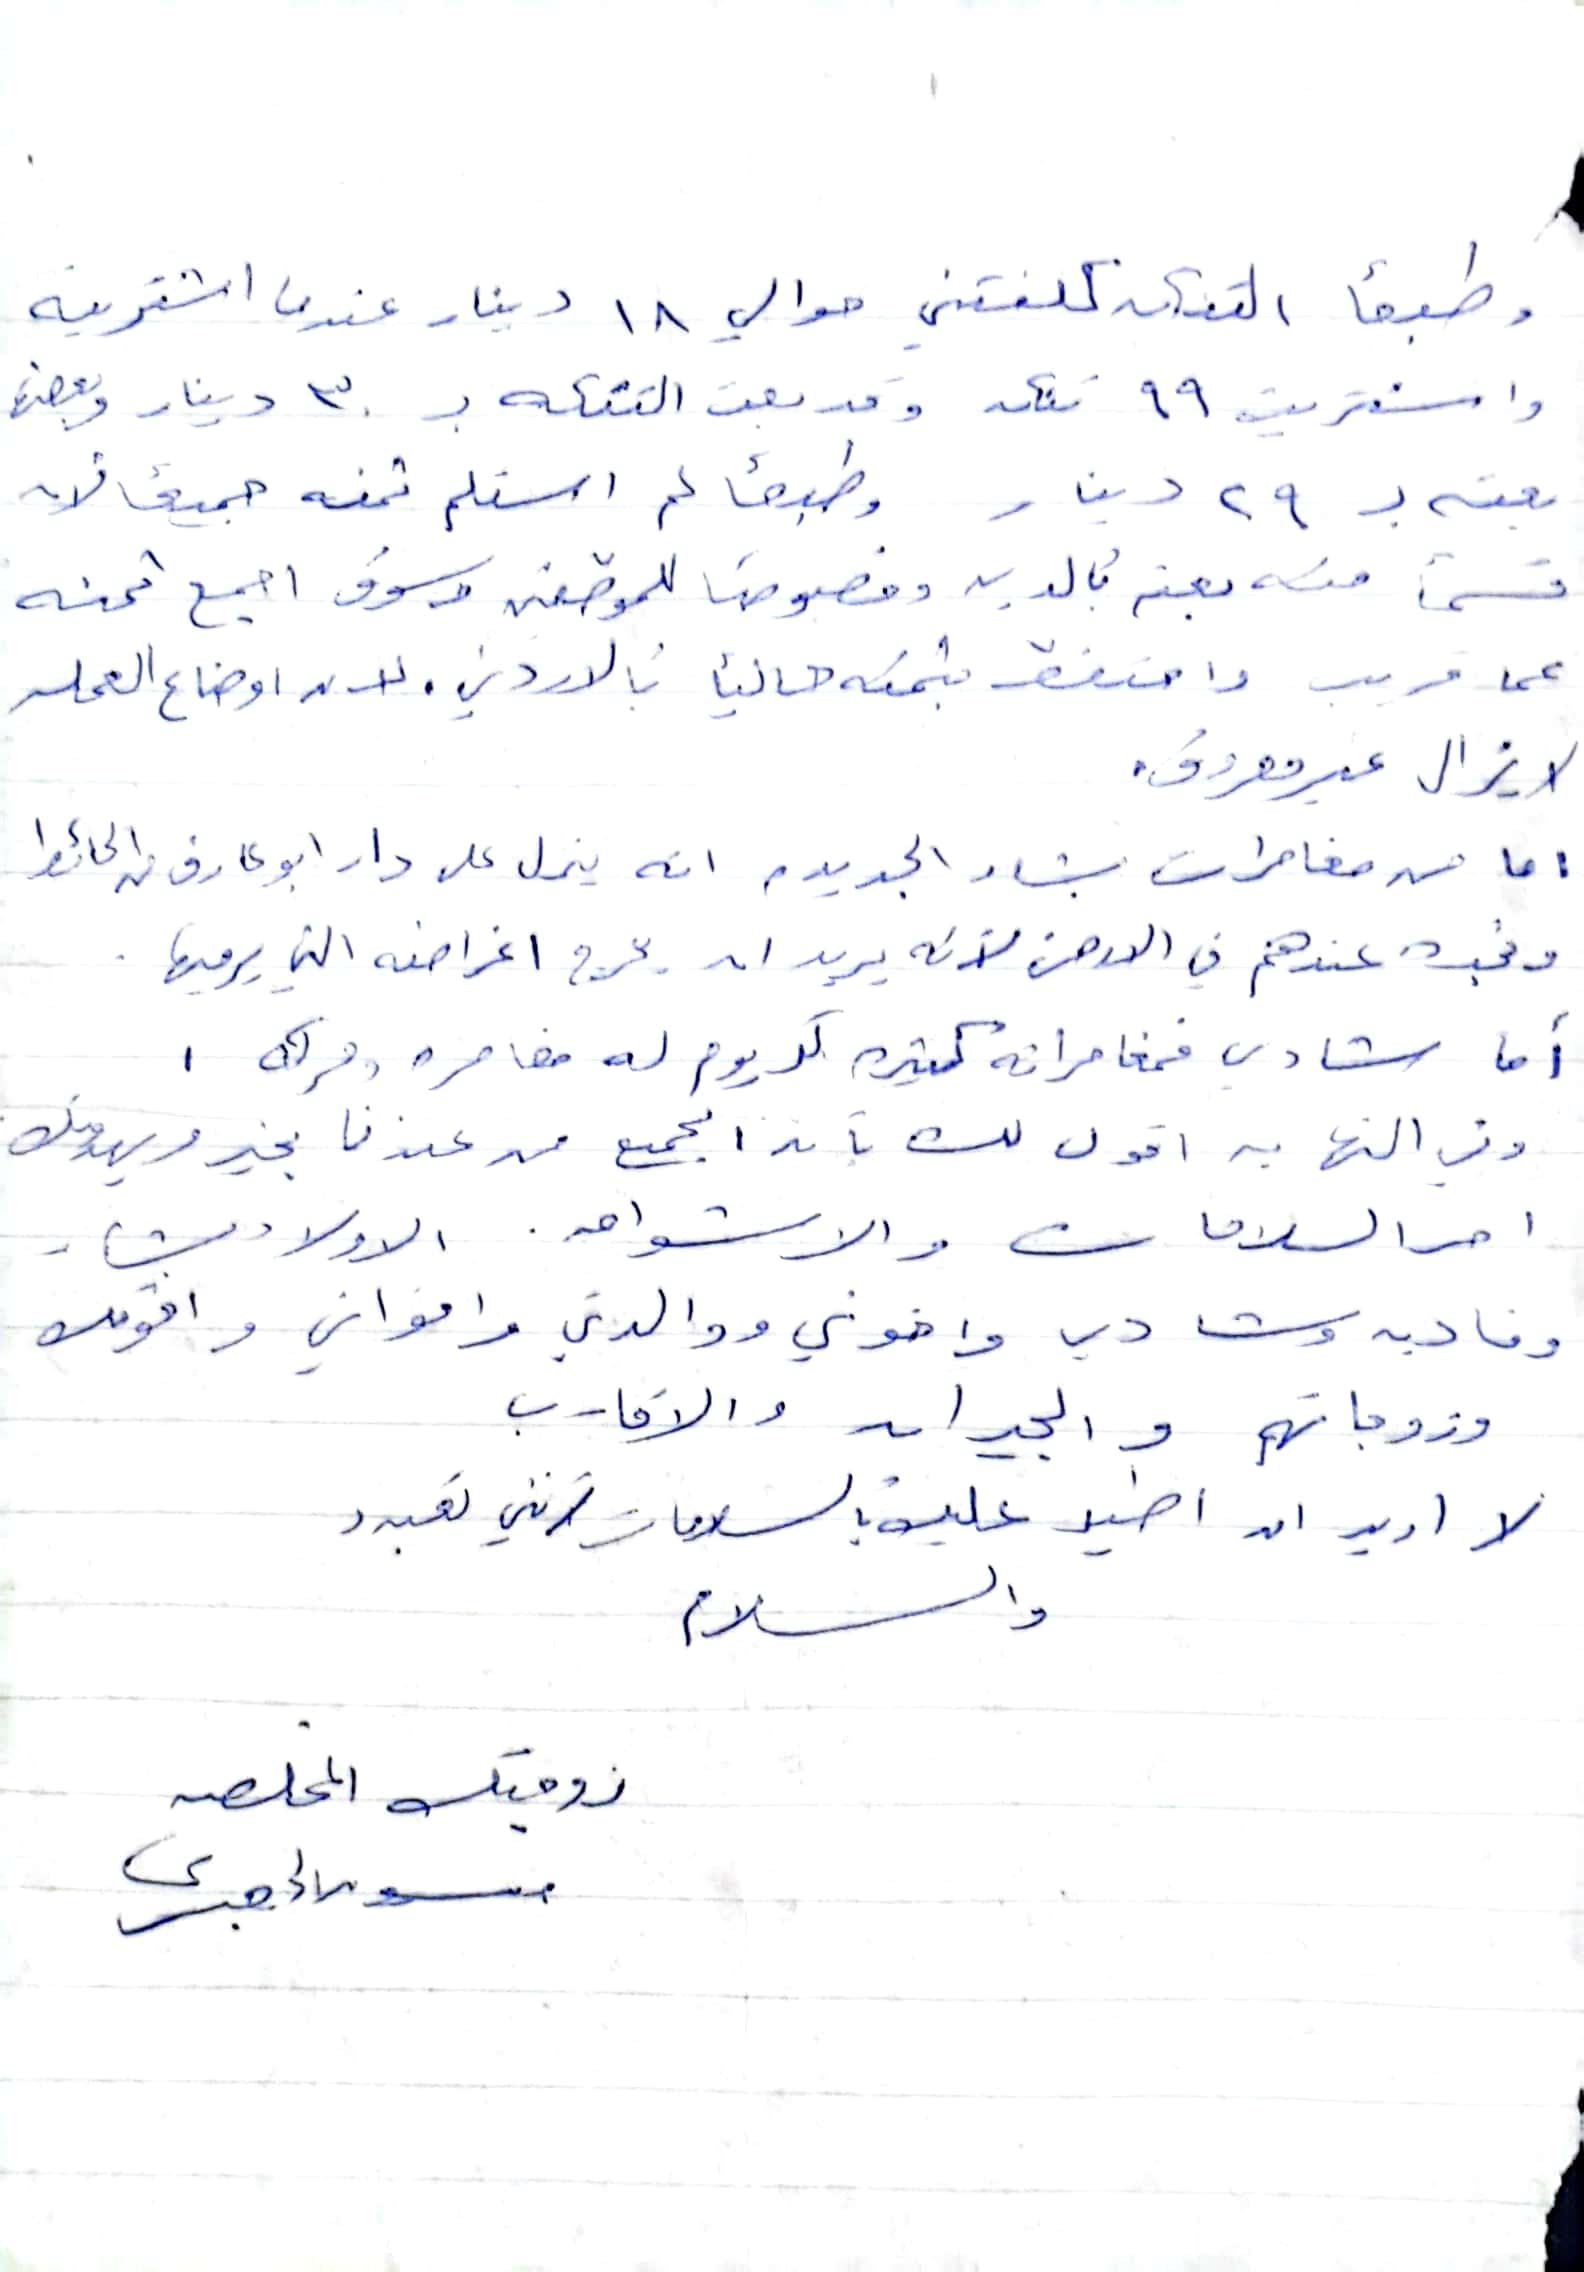 وطبعاً التنكه كلفتني حوالي ١٨ دينار عندما اشتريته
واشتريت ٩٩ تنكه وقد بعت التنكه بـ ٣٠ دينار وبعضها
بعته بـ ٢٩ دينار وطبعاً لم استلم ثمنه جميعاً لان
قسماً منه بعته بالدين وخصوصاً للموظفين وسوف اجمع ثمنه
عما قريب واحتفظ بثمنه حالياً بالاردني. لان اوضاع العمله
لا يزال غير معروف.
اما من مغامرات بشار الجديده انه ينزل على دار ابو عارف من الحائط
ونجده عندهم في الارض لأنه يريد ان يخرج اغراضه التي يرميها.
أما شادي فمغامراته كثيره كل يوم له مغامره وحركه
وفي النهايه اقول لك بأن الجميع من عندنا بخير ويهدونك
احر السلامات والاشواق. الاولاد بشار
وناديه وشادي واخوتي ووالدتي واخواني واخوتك
وزوجاتهم والجيران والاقارب
لا اريد ان اطيل عليك بالسلامات لأنني
والسلام
زوجتك المخلصه